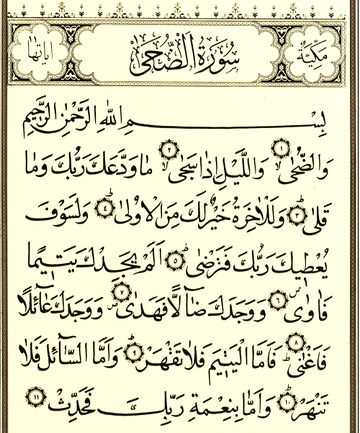 مكية سورة الضحى اياتها ١١
بِسْمِ اللهِ الرَّحْمٰنِ الرَّحِيمِ
وَالضُّحٰىۙ ﴿١﴾ وَاللَّيْلِ اِذَا سَجٰىۙ ﴿٢﴾ مَا وَدَّعَكَ رَبُّكَ وَمَا
قَلٰىۜ ﴿٣﴾ وَلَلْاٰخِرَةُ خَيْرٌ لَكَ مِنَ الْاُو۫لٰىۜ ﴿٤﴾ وَلَسَوْفَ
يُعْطِيكَ رَبُّكَ فَتَرْضٰىۜ ﴿٥﴾ اَلَمْ يَجِدْكَ يَتِيمًا
فَاٰوٰىۖ ﴿٦﴾ وَوَجَدَكَ ضَٓالًّا فَهَدٰىۖ ﴿٧﴾ وَوَجَدَكَ عَٓائِلًا
فَاَغْنٰىۜ ﴿٨﴾ فَاَمَّا الْيَتِيمَ فَلَا تَقْهَرْۜ ﴿٩﴾ وَاَمَّا السَّٓائِلَ فَلَا
تَنْهَرْۜ ﴿١٠﴾ وَاَمَّا بِنِعْمَةِ رَبِّكَ فَحَدِّثْ ﴿١١﴾